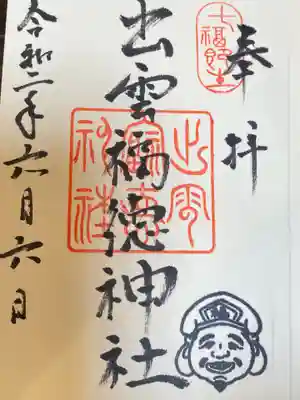 奉拝
七福神
出雲福徳神社
出雲福徳神社
令和二年六月六日